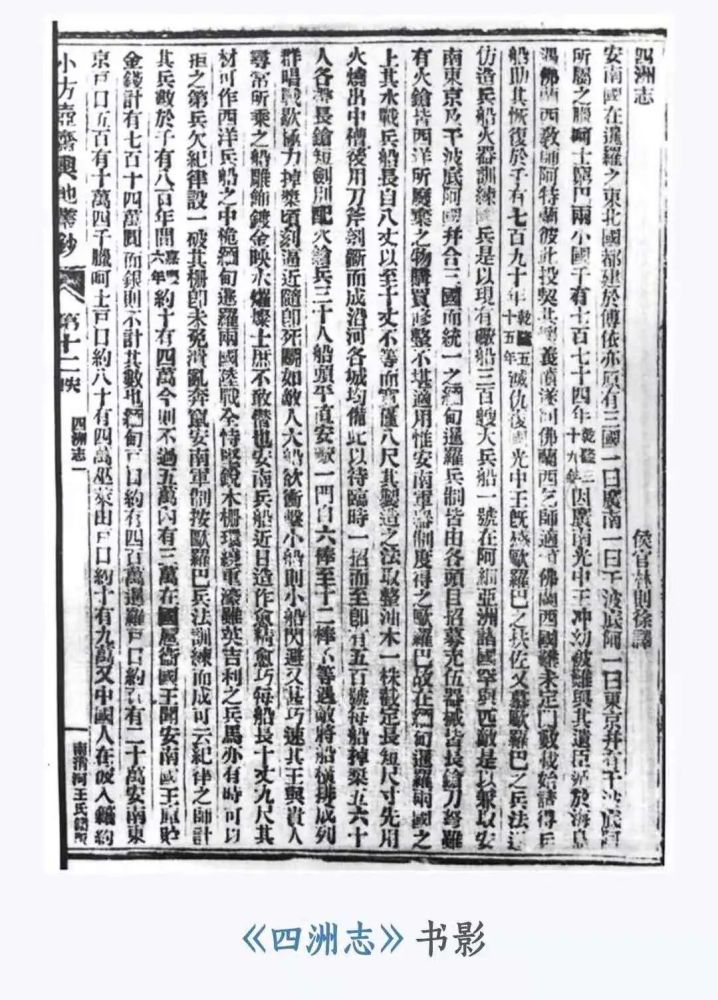 四洲志
侯官林則徐譯
安南國在暹羅之東北國都建於傅依亦原有三國一曰廣南一曰干波底阿一曰東京并有干波底阿
所屬之臘呵士 巴兩小國千有七百七十四年乾隆三十九年因廣南光中王冲幼被難與其遺臣 於海島
遇佛蘭西教師阿特蘭彼此投契其 義憤遂 佛蘭西乞師適 佛蘭西國難未定 數載始 得兵
船助其恢復於千有七百九十年乾隆五十五年滅仇復國光中王既感歐羅巴之兵佐又慕歐羅巴之兵法
仿造兵船火器訓練 兵是以現有 船三百艘大兵船一號在阿細亞洲諸國罕與匹敵是以 以安
南東京及干波底阿國并合三國而統一之緬甸暹羅兵制皆由各頭目招募充伍器械皆長鎗刀弩雖
有火鎗皆西洋所廢棄之物購買修整不堪適用惟安南軍器制度得之歐羅巴故在緬甸暹羅兩國之
上其水戰兵船長自八丈以至十丈不等而寬僅八尺其製造之法取整油木一株截定長短尺寸先用
火燒出中槽後用刀斧剖斷而成沿河各城均備此以待臨時一招而至即有五百號每船掉槳五六十
人各帶長鎗短劍別配火鎗兵三十人船頭平直安 一門自六棒至十二棒不等遇敵將船橫排成列
群唱戰歌極力掉槳頃刻逼近隨即死鬭如敵人大船欲衝擊小船則小船閃避又甚巧速其王與貴人
尋常所乘之船雕飾鍍金映水燿燦士庶不敢僭也安南兵船近日造作愈精愈巧每船長十丈九尺其
材可作西洋兵船之中桅緬甸暹羅兩國陸戰全恃堅銳木柵環繞重濠雖英吉利之兵馬亦有時可以
拒之第兵欠紀律設一破其柵即未免潰亂奔竄安南軍制按歐羅巴兵法訓練而成可云紀律之師計
其兵數於千有八百年間嘉慶六年約十有四萬今則不過五萬內有三萬在國 衛國王聞安南國王庫貯
金錢計有七百十四萬圓而銀則不計其數也緬甸戶口約有四百萬暹羅戶口約 有二十萬安南東
京戶口五百有十萬四千臘呵士戶口約八十有四萬巫萊由戶口約十有九萬又中國人在彼入籍約
小方壺齋輿地叢鈔
第十二帙
四洲志
一
南清河王氏鑄版
《四洲志》书影